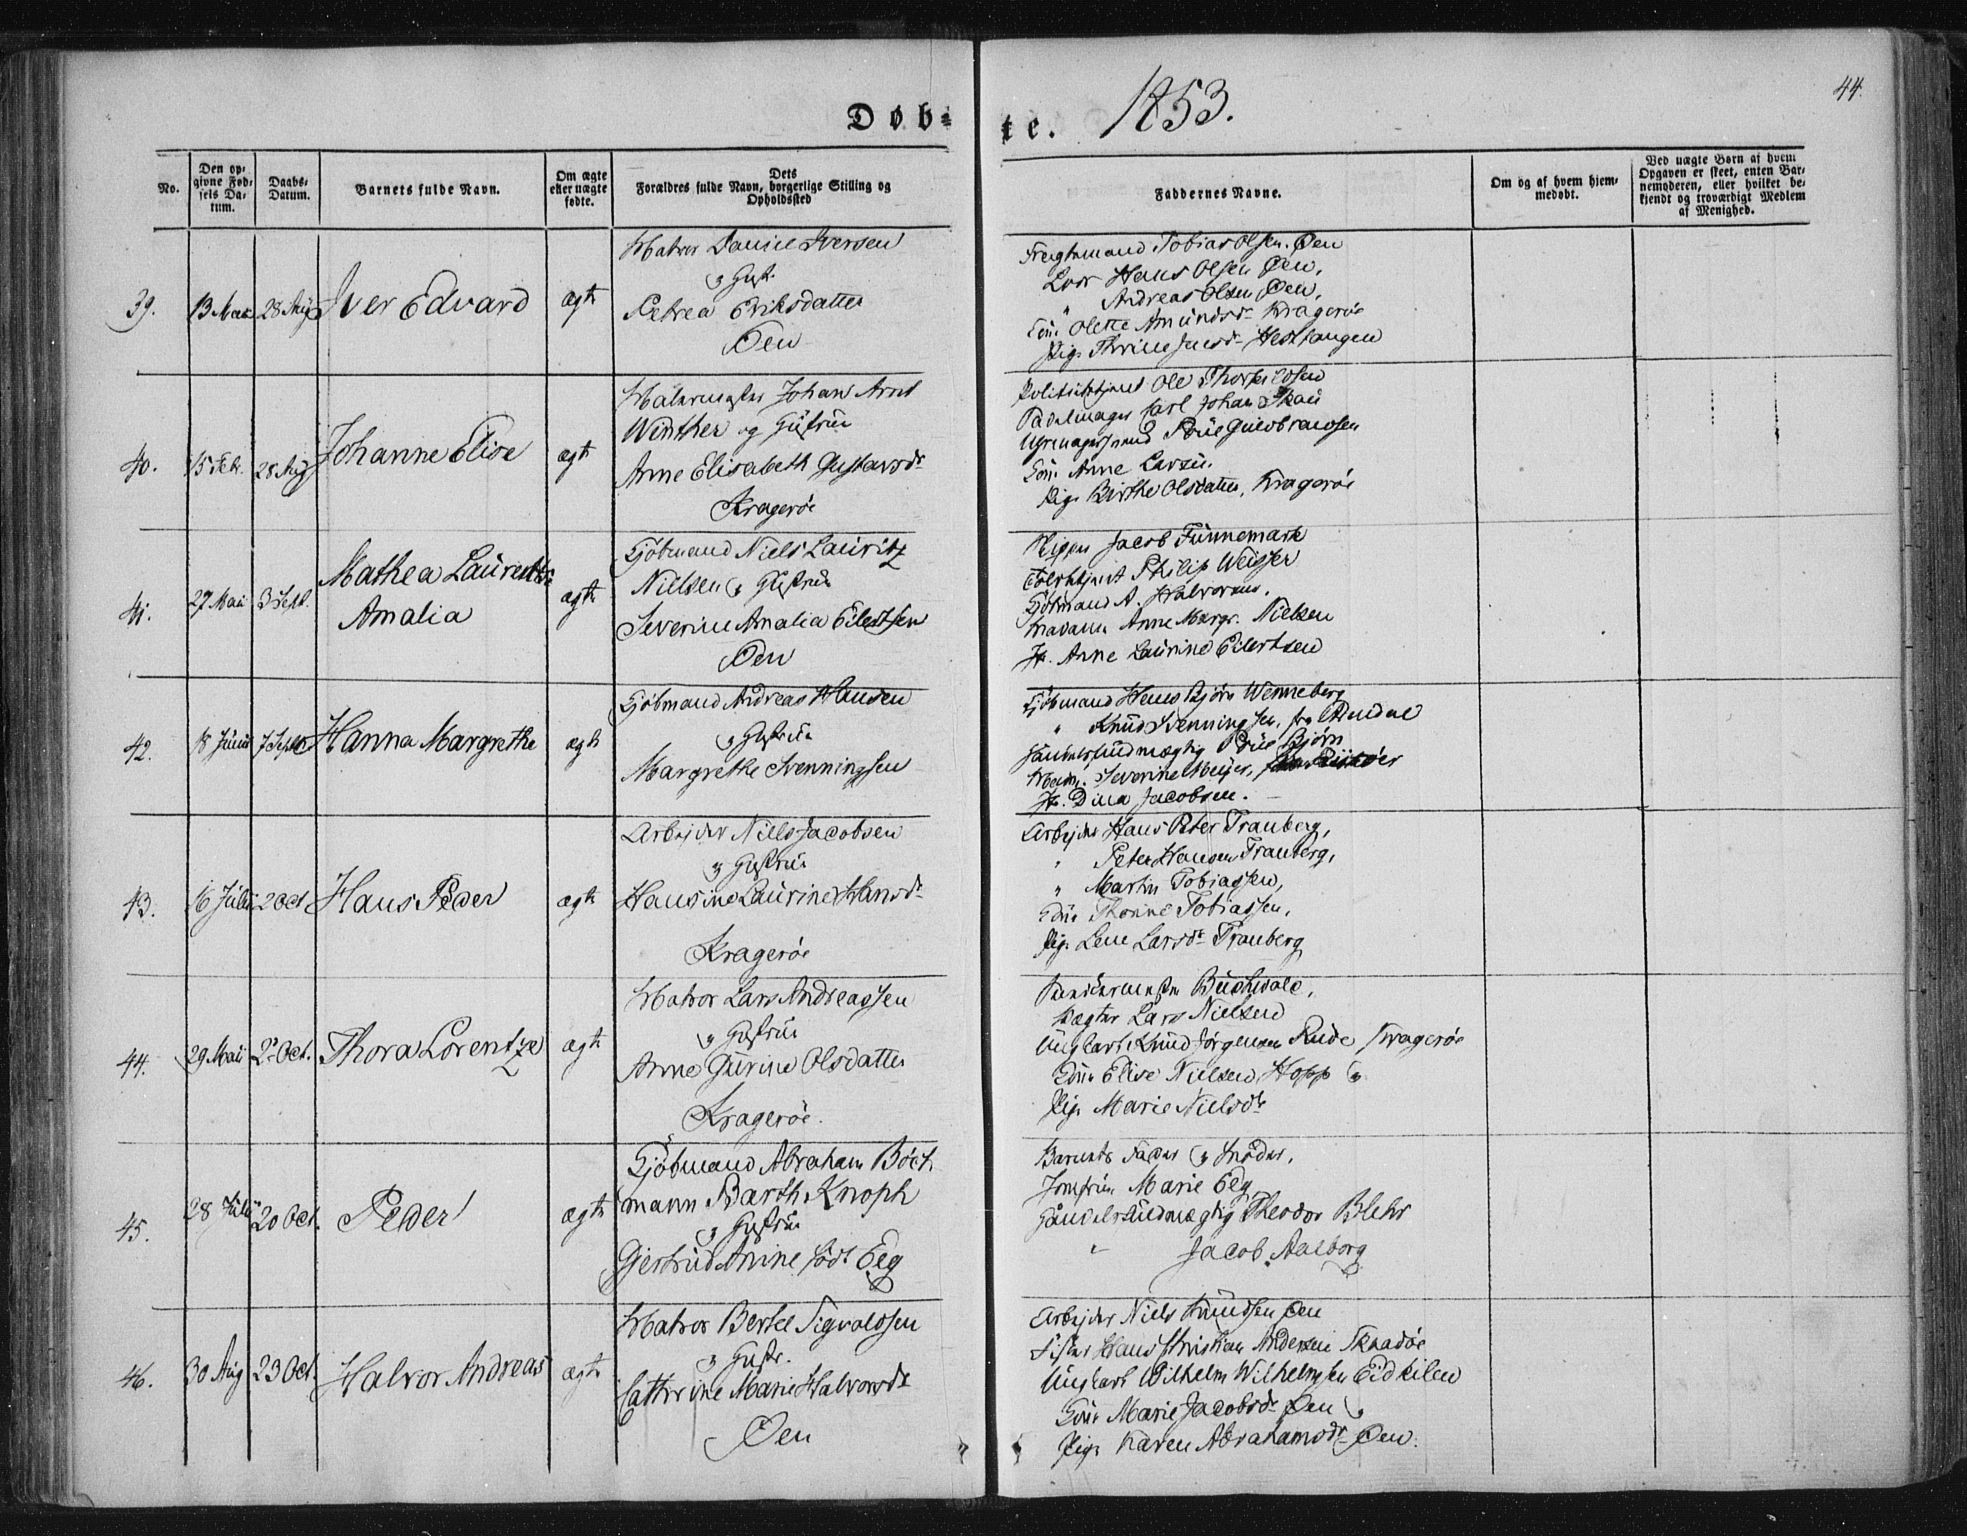 Døb-
te. 1853.
44.
No.
Den op-
givne Fød-
sels Da-
tum.
Daabs-
Datum.
Barnets fulde Navn.
Om ægte
eller uægte
fødte.
Dets
Forældres fulde Navn, borgerlige Stilling og
Opholdssted
Faddernes Navne.
Om og af hvem hjem-
medøbt.
Ved uægte Børn af hvem
Opgaven er skeet, enten Bar-
nemoderen, eller hvilket be-
kjendt og troværdigt Medlem
af Menighed.
39.
28 Aug
Iver Edvard
ægte
Matros Daniel Iversen
og Hustr.
Petrea Eriksdatter
Øen
Tobias Olsen. Øen
Hans Olsen Øen,
" Andreas Olsen Øen,
Olette Amundsdr Kragerøe
Pige
40.
15 Febr. 28 Aug
Johanne Elise
ægte
Malermester Johan Arnt
Winther og Hustrue
Anne Elisabeth Gustavsdr
Kragerøe
Politibetjent Ole
Carl Johan
Anne Larsen.
Pige Birthe Olsdatter, Kragerøe
41.
27 Mai 3 Sept.
Mathea
Amalia
ægte
Kjøbmand Niels Lauritz
Nielsen og Hustrue
Severine Amalia Eilertsen
Øen
Skipper Jacob Finnemark
Philip Weisser
Kjøbmand A. Halvorsen,
Madame Anne Margr. Nielsen
Jfr. Anne Laurine Eilertsen
42.
18 Junii 7 Sept
Hanna Margrethe
ægte
Kjøbmand Andreas Hansen
og Hustrue
Margrethe Svenningsen
Kjøbmand Hans Bjørn Wenneberg
" Knud Svenningsen, fra Arendal
Handelsfuldmægtig Bjørn
Severine Meyer,
Jfr. Dina Jacobsen.
43.
16 Julii 2 Oct
Hans Peder
ægte
Arbejder Niels Jacobsen
og Hustrue
Hansine Laurine Hansdr
Kragerøe
Arbejder Hans Peter Tranberg,
" Peter Hansen Tranberg,
" Martin Tobiassen,
Thorine Tobiassen,
Pige Lene Larsdr Tranberg
44.
29 Mai 2 Oct.
Thora Lorentze
ægte
Matros Lars Andreassen
og Hustrue
Anne Gurine Olsdatter
Kragerøe.
Buchwald,
Lars Nielsen
Ungkarl Knud Jørgensen Rude Kragerøe
Elise Nielsen, Hopp og
Pige Marie Nielsdr
45.
28 Julii 20 Oct.
Peder
ægte
Kjøbmand Abraham Böck-
mann Barth Knoph
og Hustrue
Gjertrud Anine født Eeg
Barnets Fader og Moder,
Jomfrue Marie Eeg,
Handelsfuldmægtig Theodor Blehr
" Jacob Aalborg
46.
30 Aug 23 Oct.
Halvor Andreas
ægte
Matros Bertel Sigvaldsen
og Hustr.
Cathrine Marie Halvorsdr
Øen
Arbejder Niels Knudsen Øen
Fisker Hans Christian Andersen Skaadøe
Ungkarl Wilhelm Wilhelmsen Eidkilen
Kone Marie Jacobsdr Øen og
Pige Karen Abrahamsdr Øen.